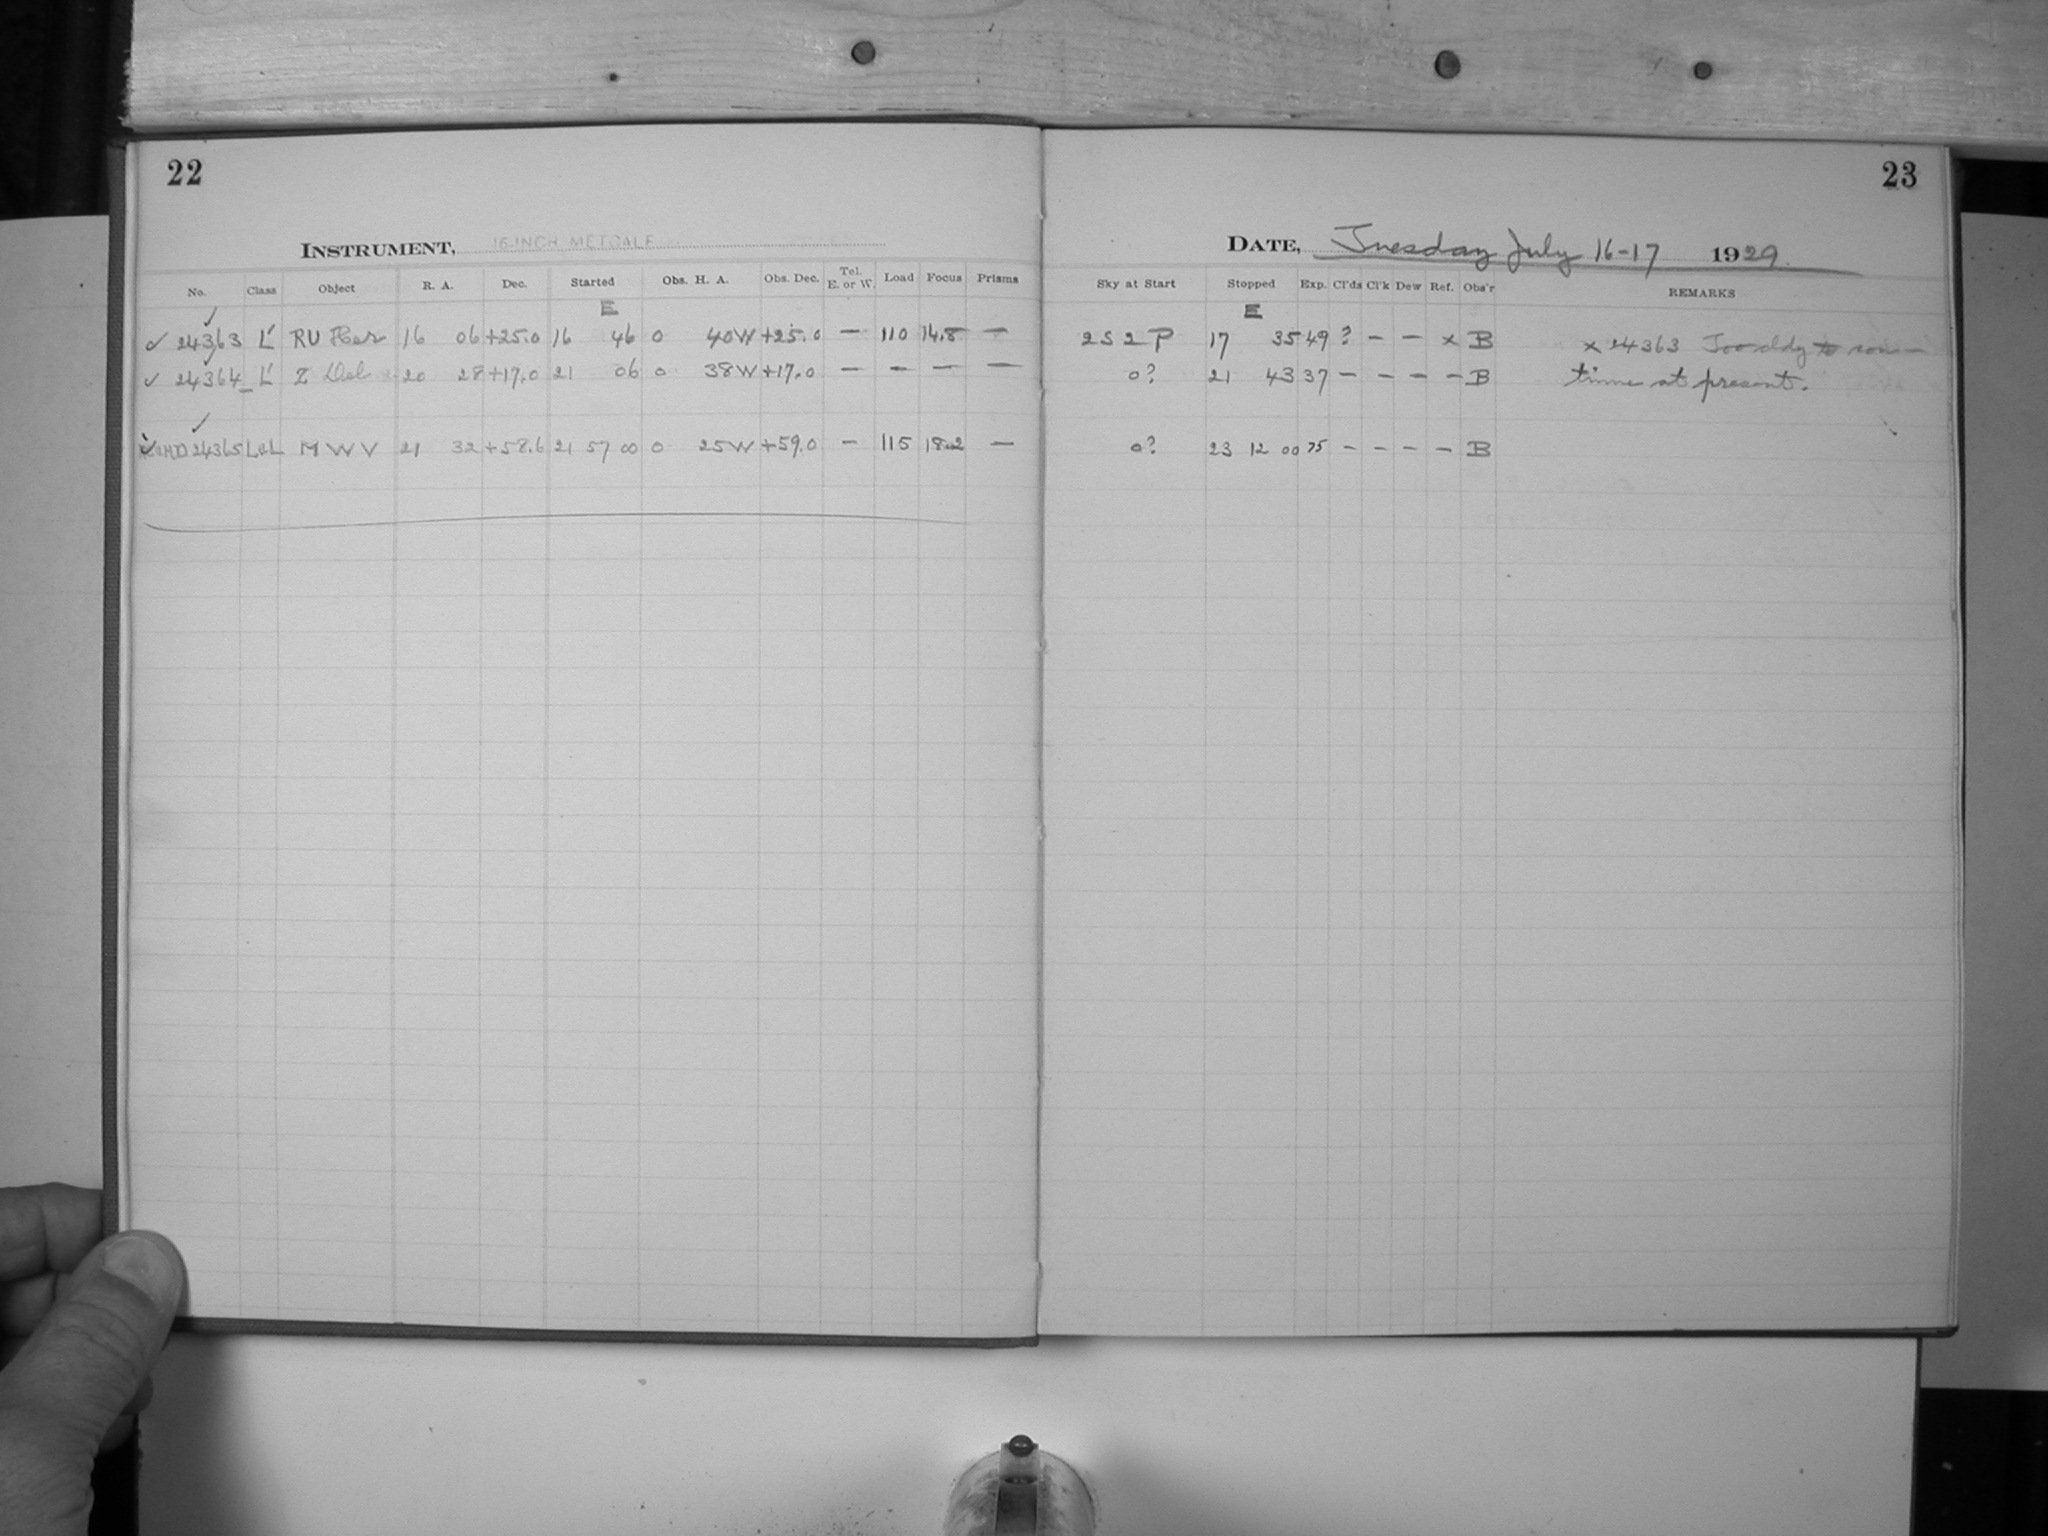 22
INSTRUMENT, 16-INCH METCALF
No. Class Object R. A. Dec. Started Obs. H. A. Obs. Dec. Tel. E. or W. Load Focus Prisms
E
✓ 24363 L' RU Her 16 06 +25.0 16 46 0 40W +25.0 — 110 14.8 —
✓ 24364 L' Z Del 20 28 +17.0 21 06 0 38W +17.0 — — — —
24365 L M W V 21 32 +58.6 21 57 00 0 25W +59.0 — 115 18.2 —
23
DATE, Tuesday July 16-17 1929
Sky at Start Stopped Exp. Cl'ds Cl'k Dew Ref. Obs'r REMARKS
E
2 S 2 P 17 35 49 ? — — x B x 24363 Too cldy to con-
0? 21 43 37 — — — — B tinue at present.
0? 23 12 00 75 — — — — B